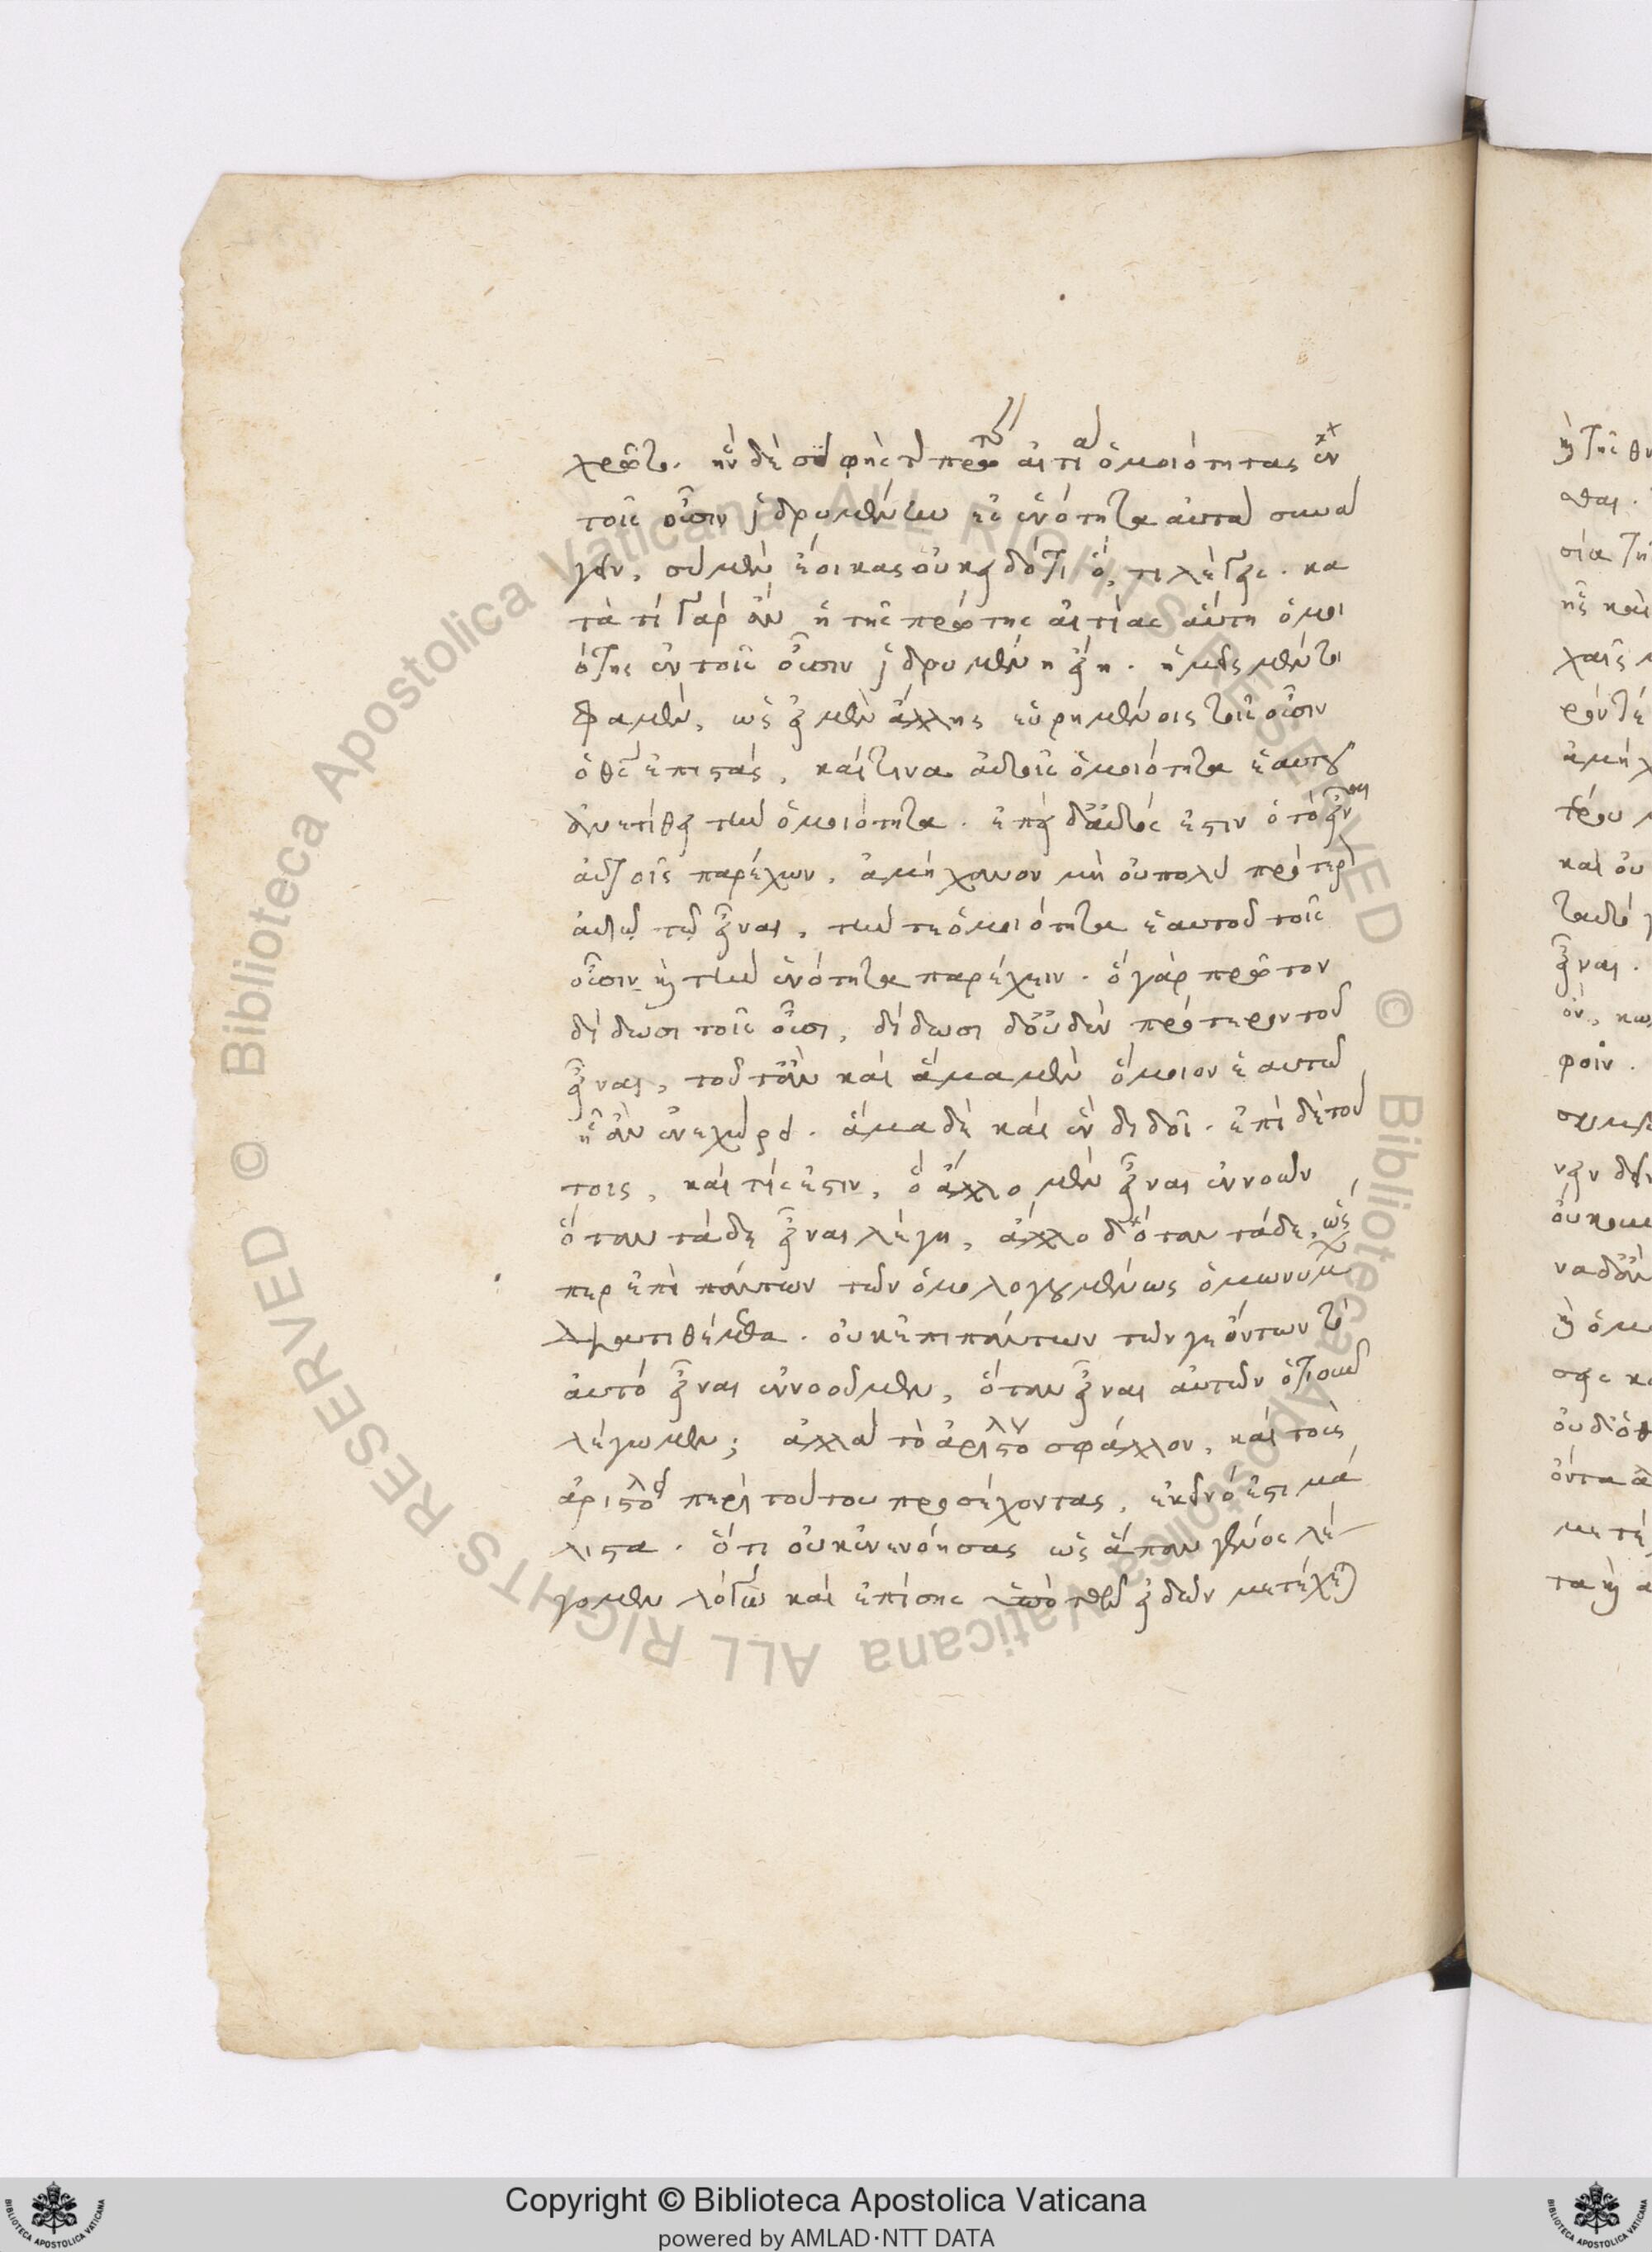 χρῷτο. ἣν δὲ σὺ φὴς τῆς πρώτης αἰτίας ὁμοιότητας ἐν
τοῖς οὖσιν ἱδρυμένην εἰς ἑνότητα αὐτὰ συνά
γειν, σὺ μὲν ἔοικας οὐκ εἰδότι ὅ, τι λέγεις. κα
τὰ τί γὰρ ἂν ἡ τῆς πρώτης αἰτίας αὕτη ὁμοι
ότης ἐν τοῖς οὖσιν ἱδρυμένη εἴη. ἡμεῖς μέντοι
φαμὲν, ὡς εἰ μὲν ἄλλης εὑρημένοις τοῖς οὖσιν
ὁ θεὸς ἐπιστὰς, καί τινα αὐτοῖς ὁμοιότητα ἑαυτοῦ
ἐνετίθει τὴν ὁμοιότητα. ἐπεὶ δ' αὐτός ἐστιν ὁ τὸ εἶναι
αὐτοῖς παρέχων, ἀμήχανον μὴ οὐ πολὺ πρότερον
αὐτῷ τῷ εἶναι, τήν τε ὁμοιότητα ἑαυτοῦ τοῖς
οὖσιν καὶ τὴν ἑνότητα παρέχειν. ὃ γὰρ πρῶτον
δίδωσι τοῖς οὖσι, δίδωσι δ' οὐδὲν πρότερον τοῦ
εἶναι, τοῦτ' ἂν καὶ ἅμα μὲν ὅμοιον ἑαυτῷ
ᾗ ἂν ἐνεχώρει. ἅμα δὲ καὶ ἓν διδοῖ. ἐπὶ δὲ τού
τοις, καὶ τίς ἐστιν, ὃ ἄλλο μὲν εἶναι ἐννοῶν
ὅταν τάδε εἶναι λέγῃ, ἄλλο δ' ὅταν τάδε, ὥς
περ ἐπὶ πάντων τῶν ὁμολογουμένως ὁμωνύμων
διατιθέμεθα. οὐκ ἐπὶ πάντων τῶν γε ὄντων τὸ
αὐτὸ εἶναι ἐννοοῦμεν, ὅταν εἶναι αὐτῶν ὁτιοῦν
λέγωμεν; ἀλλὰ τὸ ἀριστοτέλην σφάλλον, καὶ τοὺς
ἀριστοτέλει περὶ τούτου προσέχοντας, ἐκεῖνό ἐστι μά
λιστα. ὅτι οὐκ ἐνενόησας ὡς ἅπαν γένος λέ
γομεν λόγῳ καὶ ἐπίσης ὑπὸ τῶν εἰδῶν μετέχεσθαι